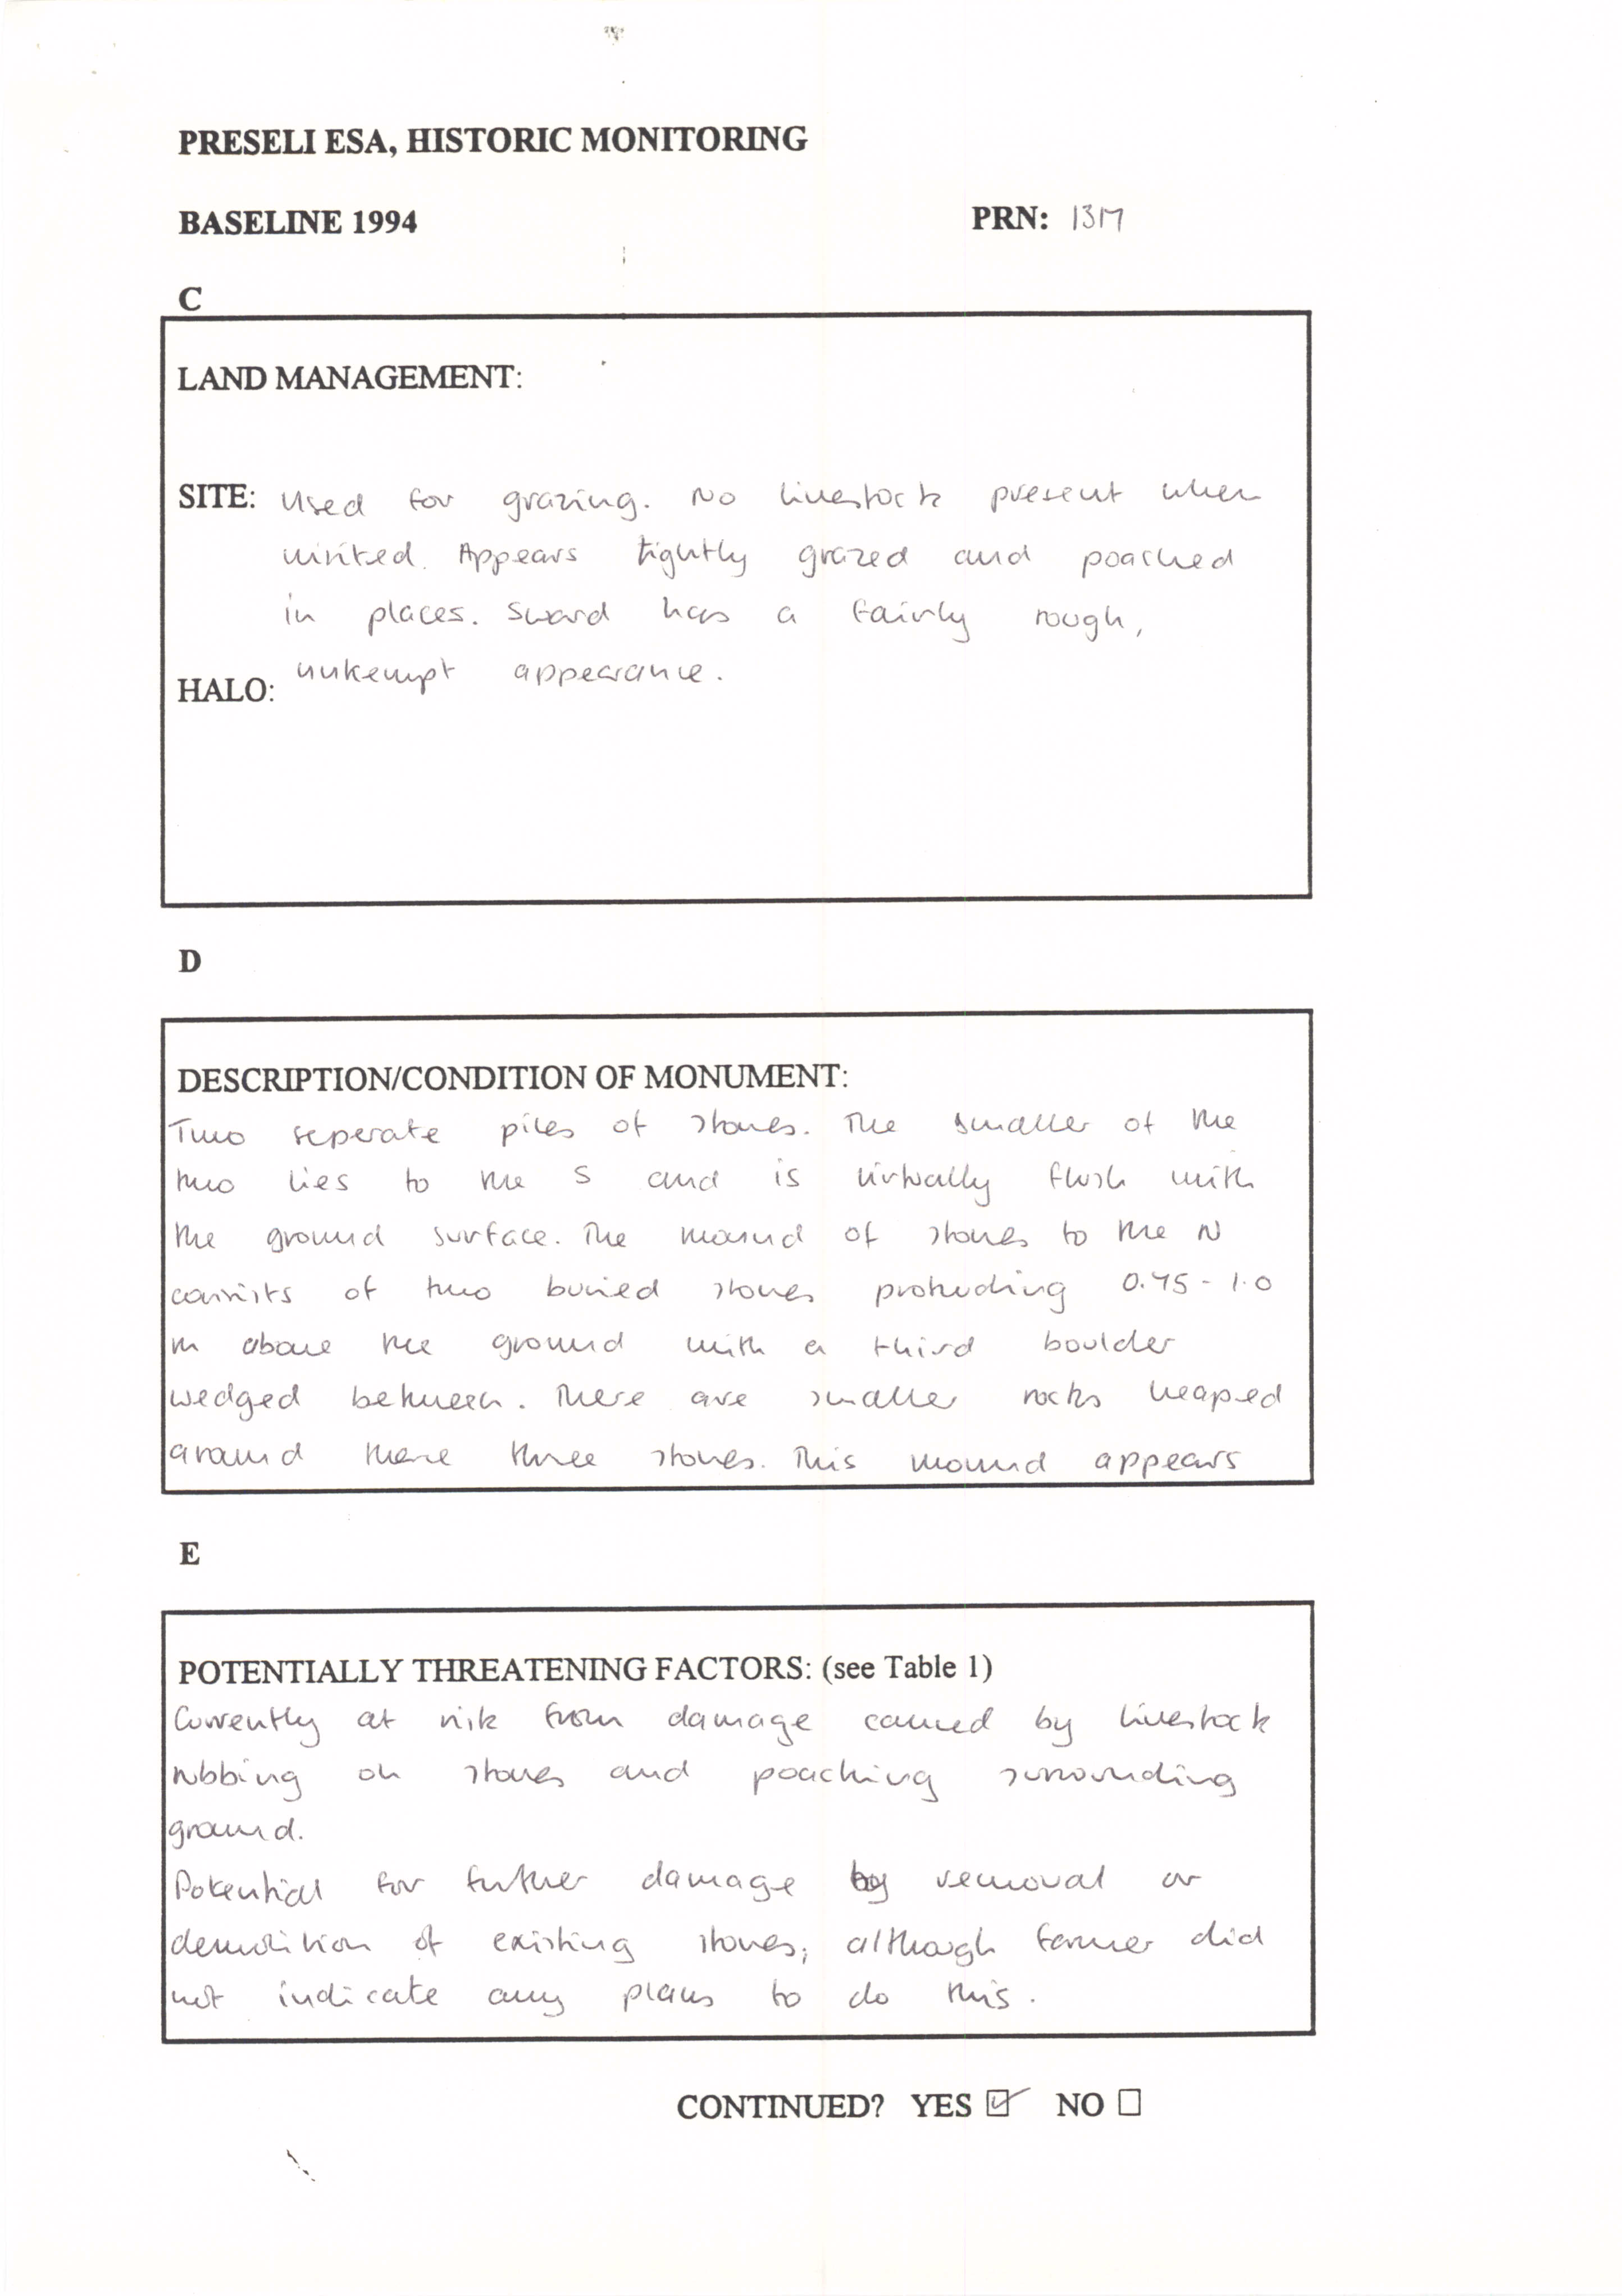 PRESELI ESA, HISTORIC MONITORING
BASELINE 1994
PRN: 1317
C
LAND MANAGEMENT:
SITE: Used for grazing. No livestock present when
visited. Appears tightly grazed and poached
in places. Sward has a fairly rough,
unkempt appearance.
HALO:
D
DESCRIPTION/CONDITION OF MONUMENT:
Two seperate piles of stones. The smaller of the
two lies to the S and is virtually flush with
the ground surface. The mound of stones to the N
consists of two buried stones protruding 0.75 - 1.0
m above the ground with a third boulder
wedged between. There are smaller rocks heaped
around these three stones. This mound appears
E
POTENTIALLY THREATENING FACTORS: (see Table 1)
Currently at risk from damage caused by livestock
rubbing on stones and poaching surrounding
ground.
Potential for further damage by removal or
demolition of existing stones; although farmer did
not indicate any plans to do this.
CONTINUED? YES ☑ NO ☐